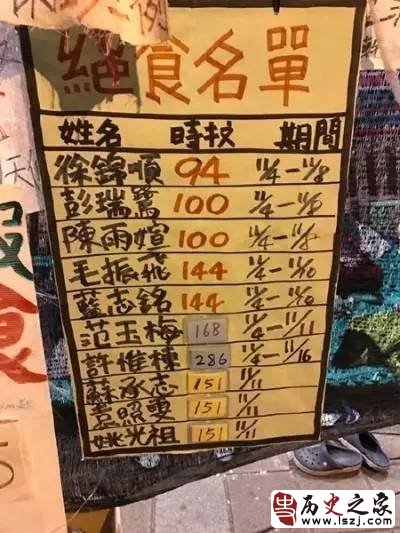 絕食名單
姓名 時数 期間
徐錦順 94 11/4-11/8
彭瑞鷺 100 11/4-11/8
陳雨媗 100 11/4-11/8
毛振飛 144 11/4-11/10
藍志銘 144 11/4-11/10
范玉梅 168 11/4-11/11
許惟棟 286 11/4-11/16
蘇承志 151 11/11
袁照雯 151 11/11
姚光祖 151 11/11
食
5
历史之家
www.lszj.com